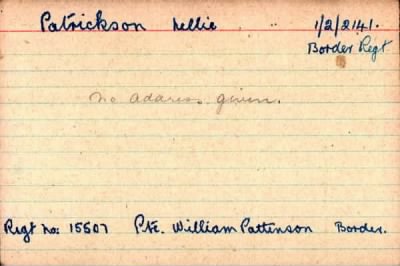 Patrickson Nellie 1/2/2141.
Border Regt
No address given.
Regt no: 15507 Pte. William Pattinson Border.